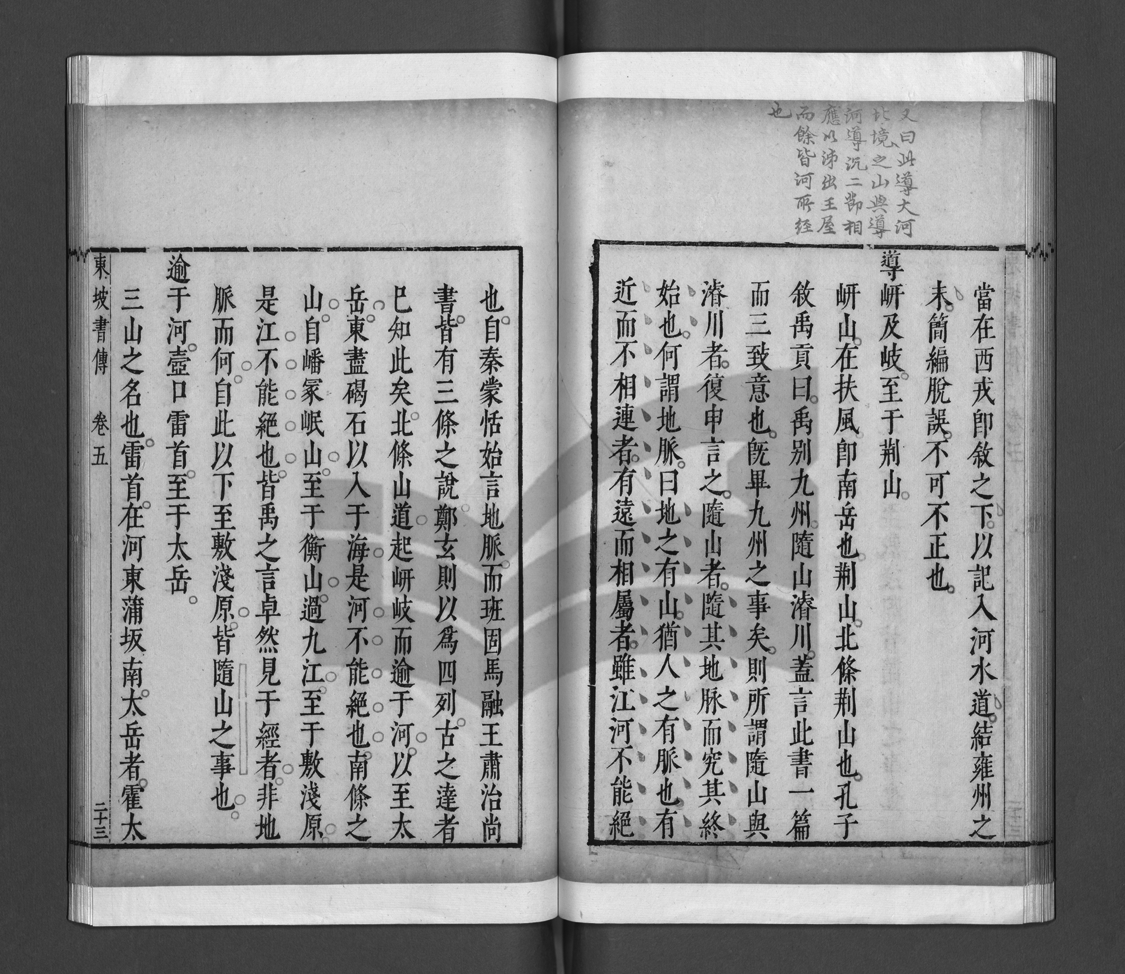 又曰此導大河
北境之山與導
河導沇二節相
應以濟出王屋
而餘皆河所經
也
當在西戎卽敘之下以記入河水道結雍州之
末簡編脫誤不可不正也
導岍及岐至于荆山
岍山在扶風卽南岳也荆山北條荆山也孔子
敘禹貢曰禹別九州隨山濬川蓋言此書一篇
而三致意也旣畢九州之事矣則所謂隨山與
濬川者復申言之隨山者隨其地脉而究其終
始也何謂地脈曰地之有山猶人之有脈也有
近而不相連者有遠而相屬者雖江河不能絕
也自秦蒙恬始言地脈而班固馬融王肅治尚
書皆有三條之說鄭玄則以爲四列古之達者
已知此矣北條山道起岍岐而逾于河以至太
岳東盡碣石以入于海是河不能絕也南條之
山自嶓冢岷山至于衡山過九江至于敷淺原
是江不能絕也皆禹之言卓然見于經者非地
脈而何自此以下至敷淺原皆隨山之事也
逾于河壺口雷首至于太岳
三山之名也雷首在河東蒲坂南太岳者霍太
東坡書傳 卷五 二十三